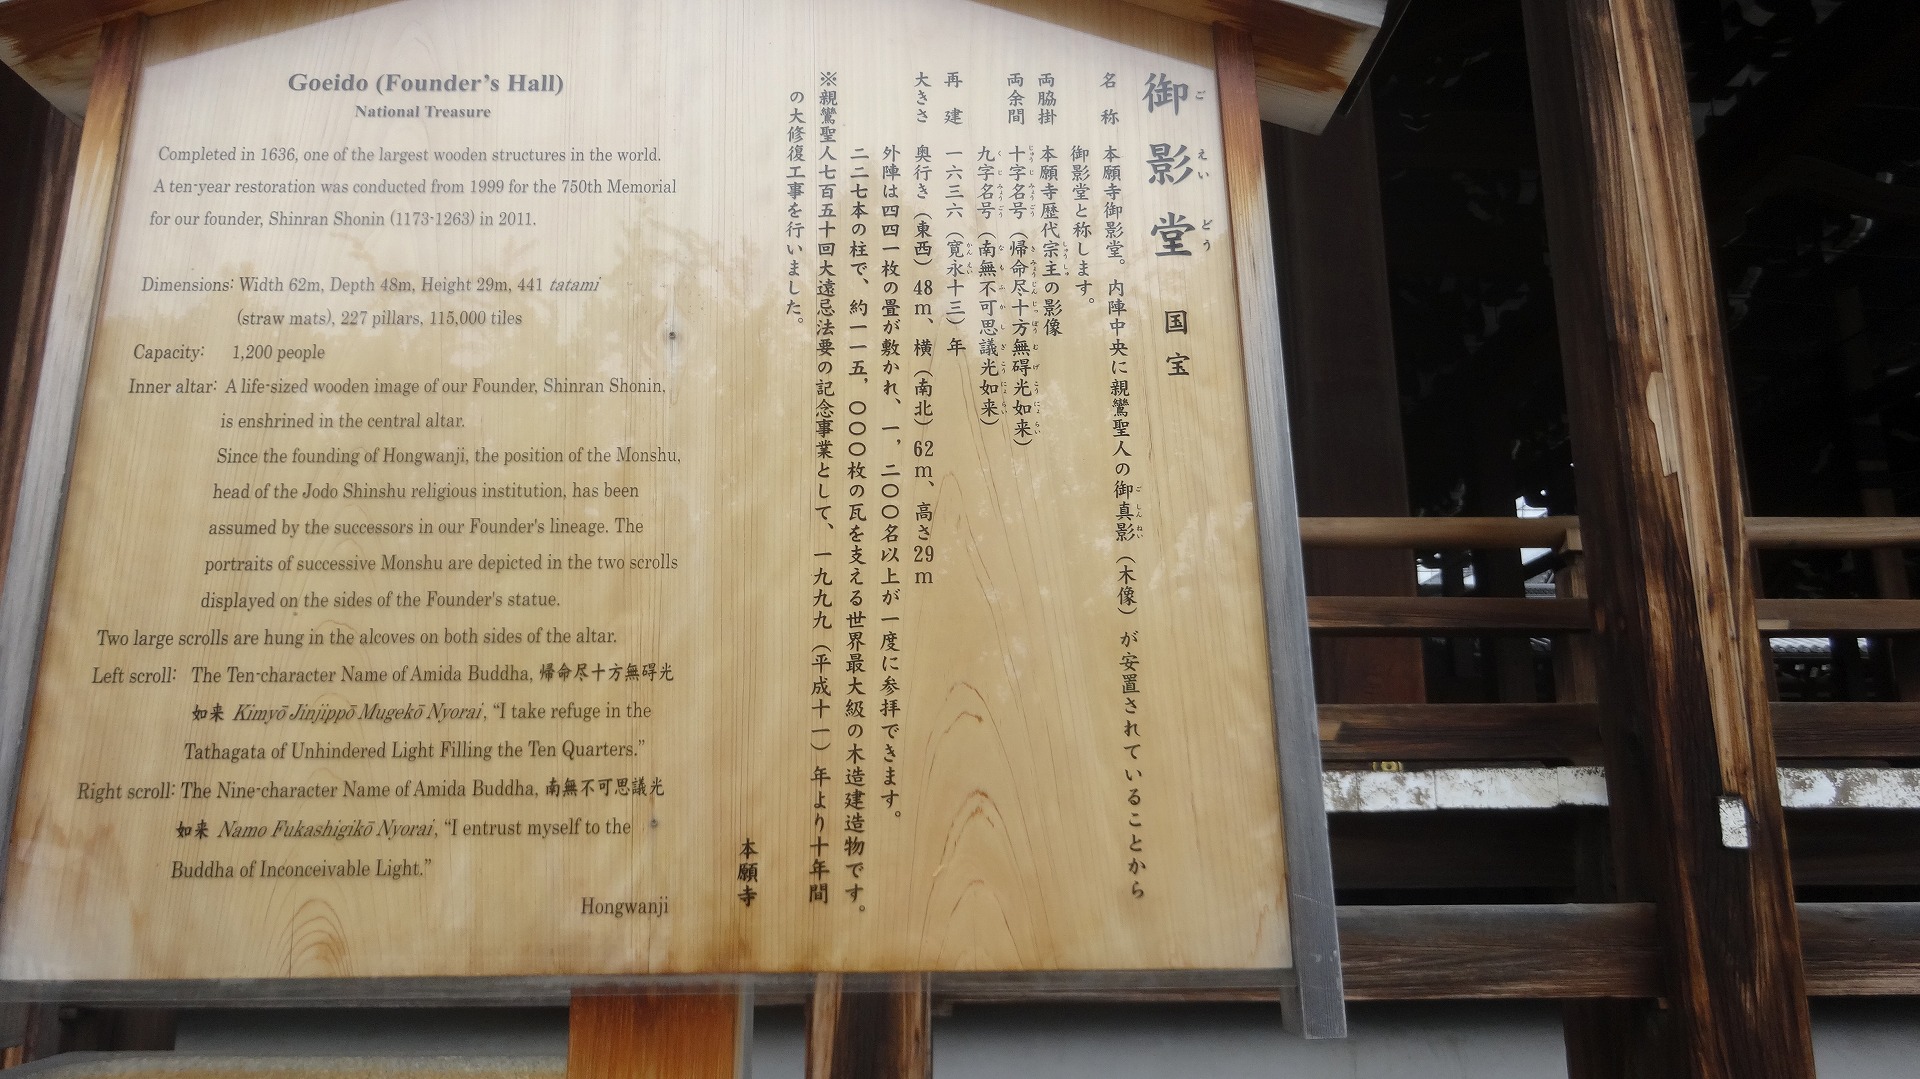 Goeido (Founder's Hall)
National Treasure
Completed in 1636, one of the largest wooden structures in the world.
A ten-year restoration was conducted from 1999 for the 750th Memorial
for our founder, Shinran Shonin (1173-1263) in 2011.
Dimensions: Width 62m, Depth 48m, Height 29m, 441 tatami
(straw mats), 227 pillars, 115,000 tiles
Capacity: 1,200 people
Inner altar: A life-sized wooden image of our Founder, Shinran Shonin,
is enshrined in the central altar.
Since the founding of Hongwanji, the position of the Monshu,
head of the Jodo Shinshu religious institution, has been
assumed by the successors in our Founder's lineage. The
portraits of successive Monshu are depicted in the two scrolls
displayed on the sides of the Founder's statue.
Two large scrolls are hung in the alcoves on both sides of the altar.
Left scroll: The Ten-character Name of Amida Buddha, 帰命尽十方無碍光
如来 Kimyō Jinjippō Mugekō Nyorai, “I take refuge in the
Tathagata of Unhindered Light Filling the Ten Quarters.”
Right scroll: The Nine-character Name of Amida Buddha, 南無不可思議光
如来 Namo Fukashigikō Nyorai, “I entrust myself to the
Buddha of Inconceivable Light.”
Hongwanji
御影堂 国宝
ごえいどう
名称 本願寺御影堂。内陣中央に親鸞聖人の御真影（木像）が安置されていることから
ごしんねい
御影堂と称します。
両脇掛 本願寺歴代宗主の影像
しゅうしゅ
両余間 十字名号（帰命尽十方無碍光如来）
じゅうじみょうごう きみょうじんじっぽうむげこうにょらい
九字名号（南無不可思議光如来）
くじみょうごう なもふかしぎこうにょらい
再建 一六三六（寛永十三）年
かんえい
大きさ 奥行き（東西）48m、横（南北）62m、高さ29m
外陣は四四一枚の畳が敷かれ、一，二〇〇名以上が一度に参拝できます。
二二七本の柱で、約一一五，〇〇〇枚の瓦を支える世界最大級の木造建造物です。
※親鸞聖人七百五十回大遠忌法要の記念事業として、一九九九（平成十一）年より十年間
の大修復工事を行いました。
本願寺